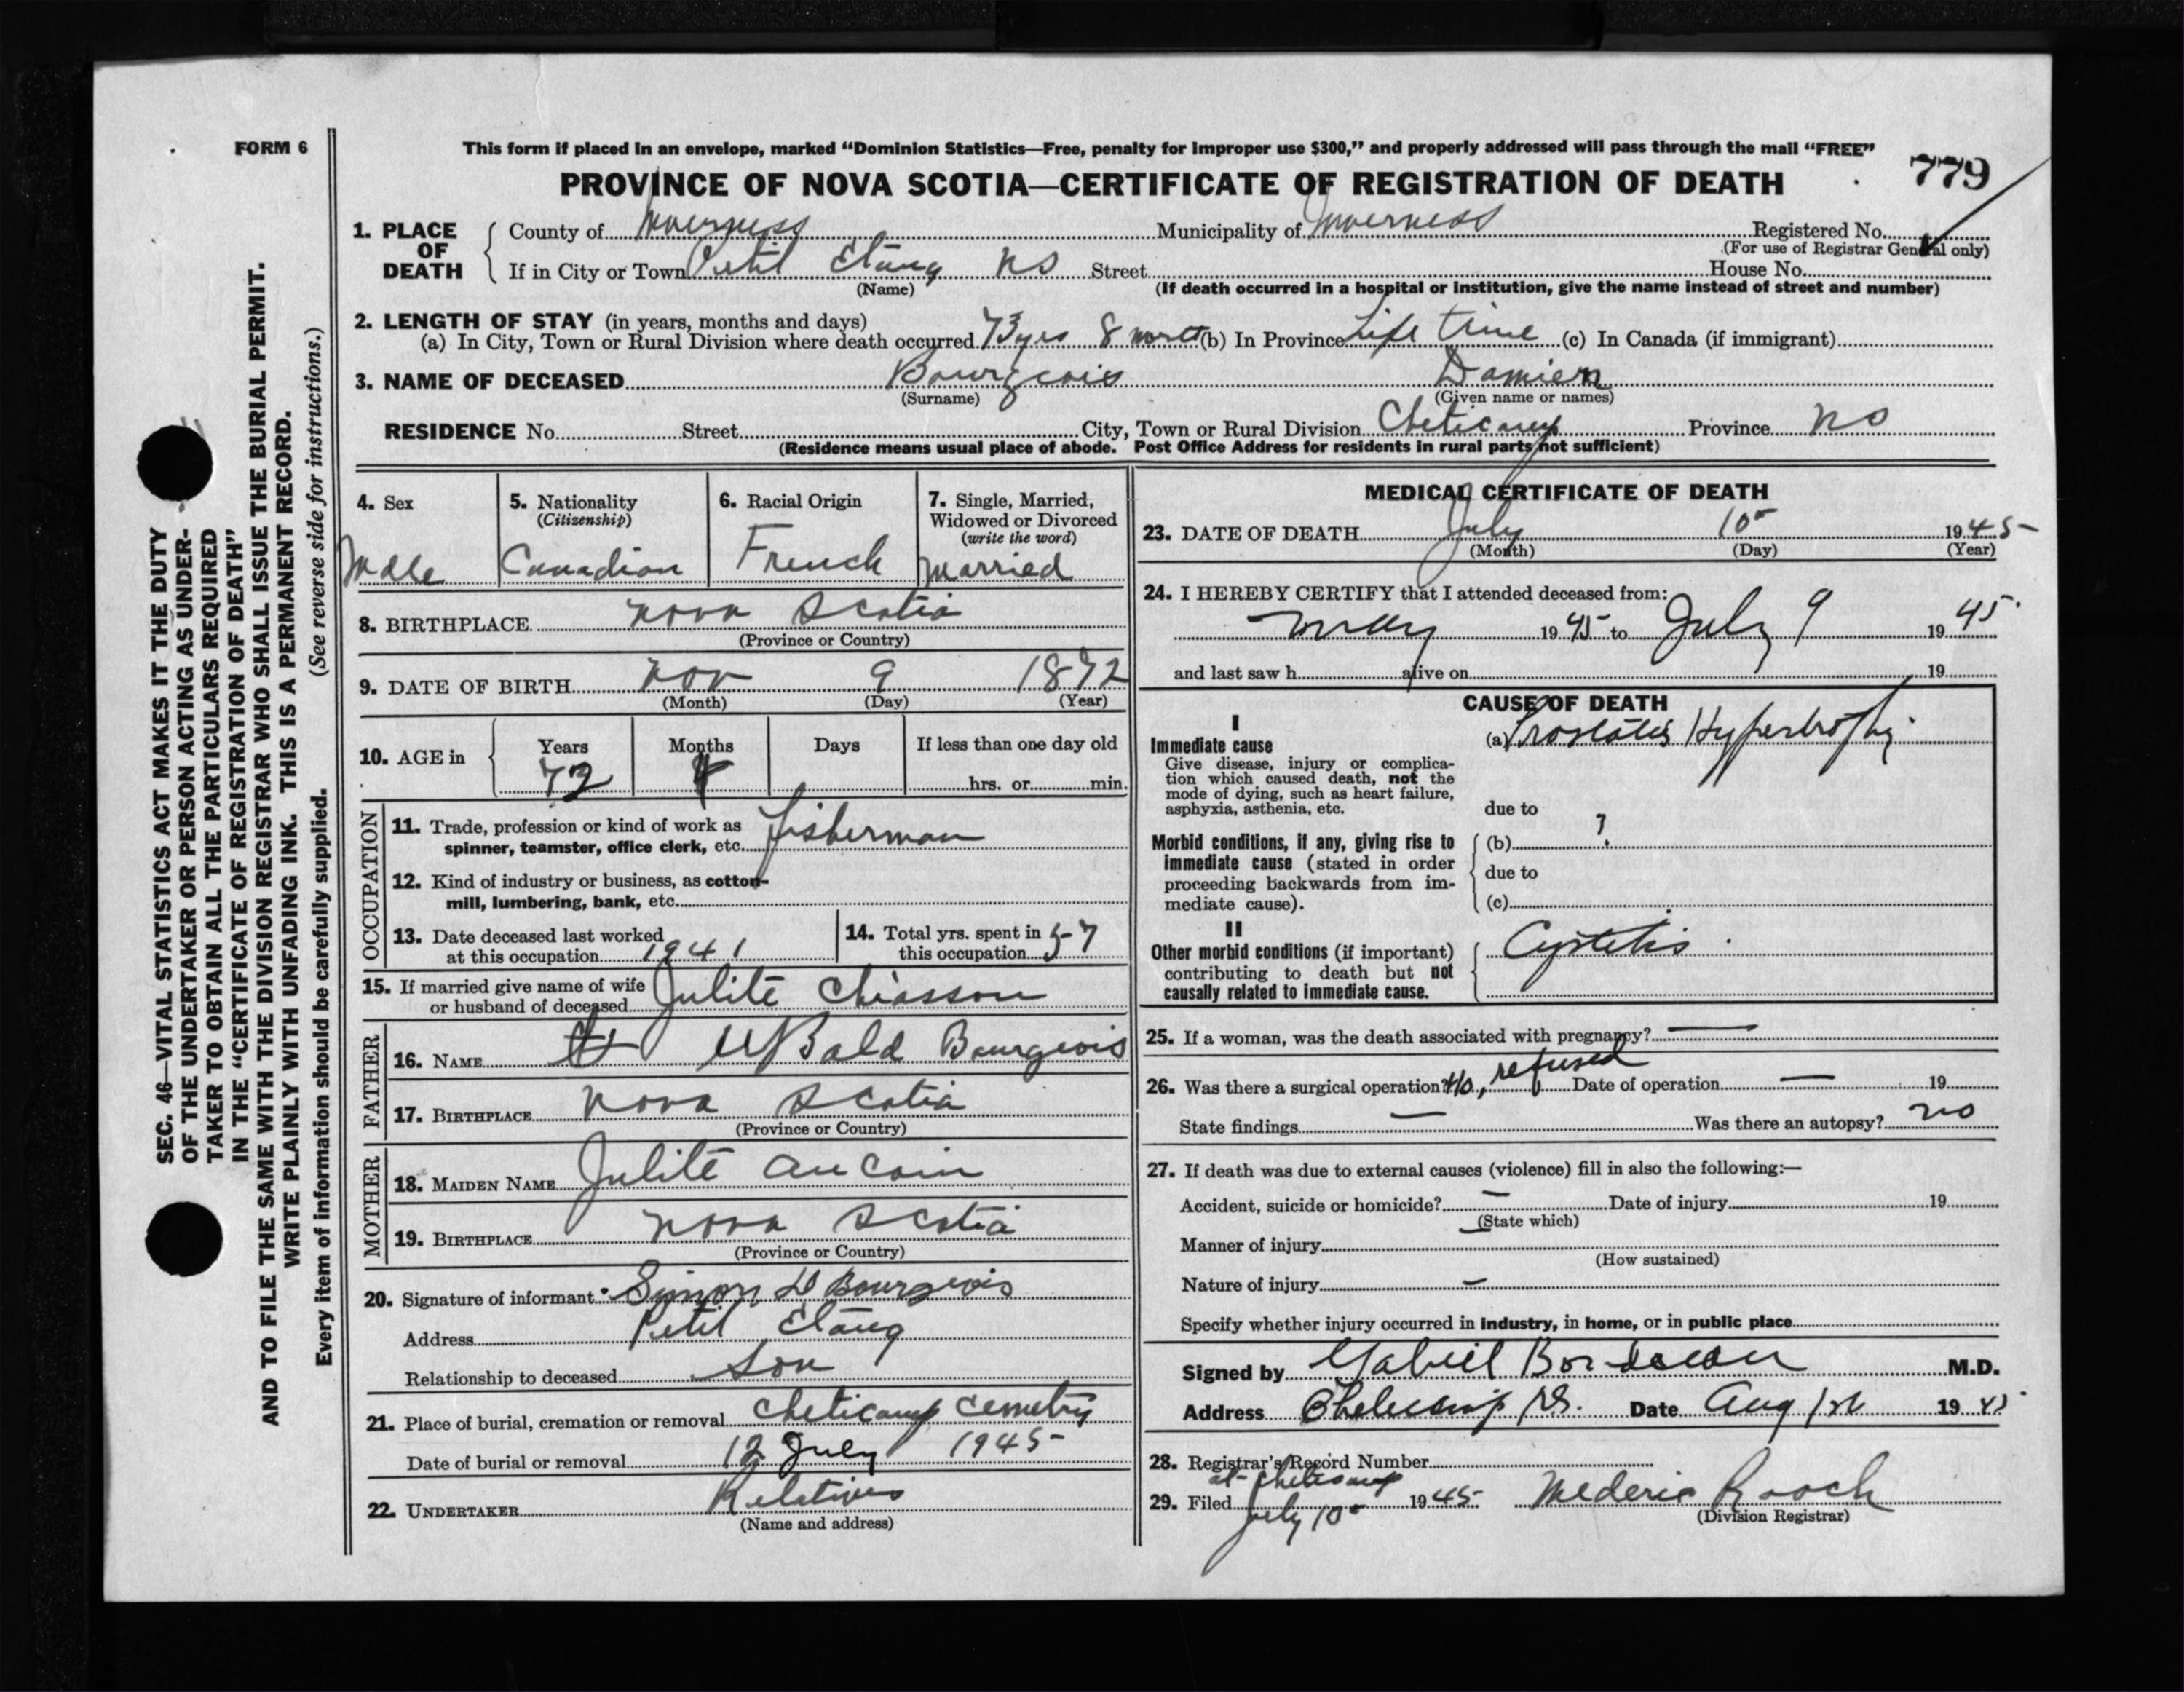 FORM 6
This form if placed in an envelope, marked “Dominion Statistics—Free, penalty for improper use $300,” and properly addressed will pass through the mail “FREE”
PROVINCE OF NOVA SCOTIA—CERTIFICATE OF REGISTRATION OF DEATH
779
SEC. 46—VITAL STATISTICS ACT MAKES IT THE DUTY
OF THE UNDERTAKER OR PERSON ACTING AS UNDER-
TAKER TO OBTAIN ALL THE PARTICULARS REQUIRED
IN THE “CERTIFICATE OF REGISTRATION OF DEATH”
AND TO FILE THE SAME WITH THE DIVISION REGISTRAR WHO SHALL ISSUE THE BURIAL PERMIT.
WRITE PLAINLY WITH UNFADING INK. THIS IS A PERMANENT RECORD.
Every item of information should be carefully supplied. (See reverse side for instructions.)
1. PLACE OF DEATH
County of Inverness Municipality of Inverness Registered No.
(For use of Registrar General only)
If in City or Town Petit Etang NS Street House No.
(Name) (If death occurred in a hospital or institution, give the name instead of street and number)
2. LENGTH OF STAY (in years, months and days)
(a) In City, Town or Rural Division where death occurred 73 yrs 8 (b) In Province Life time (c) In Canada (if immigrant)
3. NAME OF DECEASED Bourgeois Damien
(Surname) (Given name or names)
RESIDENCE No. Street City, Town or Rural Division Cheticamp Province NS
(Residence means usual place of abode. Post Office Address for residents in rural parts not sufficient)
4. Sex Male
5. Nationality (Citizenship) Canadian
6. Racial Origin French
7. Single, Married, Widowed or Divorced (write the word) Married
8. BIRTHPLACE Nova Scotia
(Province or Country)
9. DATE OF BIRTH Nov 9 1872
(Month) (Day) (Year)
10. AGE in Years 72 Months 8 Days If less than one day old
hrs. or min.
OCCUPATION
11. Trade, profession or kind of work as
spinner, teamster, office clerk, etc. Fisherman
12. Kind of industry or business, as cotton-
mill, lumbering, bank, etc.
13. Date deceased last worked
at this occupation 1941
14. Total yrs. spent in
this occupation 57
15. If married give name of wife
or husband of deceased Julite Chiasson
FATHER
16. NAME UBald Bourgeois
17. BIRTHPLACE Nova Scotia
(Province or Country)
MOTHER
18. MAIDEN NAME Julite Aucoin
19. BIRTHPLACE Nova Scotia
(Province or Country)
20. Signature of informant Simon D Bourgeois
Address Petit Etang
Relationship to deceased Son
21. Place of burial, cremation or removal Cheticamp Cemetry
Date of burial or removal 12 July 1945
22. UNDERTAKER Relatives
(Name and address)
MEDICAL CERTIFICATE OF DEATH
23. DATE OF DEATH July 10 1945
(Month) (Day) (Year)
24. I HEREBY CERTIFY that I attended deceased from:
May 1945 to July 9 1945
and last saw h alive on 19
CAUSE OF DEATH
I
Immediate cause
Give disease, injury or complica-
tion which caused death, not the
mode of dying, such as heart failure,
asphyxia, asthenia, etc.
(a) Hypertrophy
due to
Morbid conditions, if any, giving rise to
immediate cause (stated in order
proceeding backwards from im-
mediate cause).
(b) ?
due to
(c)
II
Other morbid conditions (if important)
contributing to death but not
causally related to immediate cause.
Cystitis
25. If a woman, was the death associated with pregnancy? —
26. Was there a surgical operation? No, refused Date of operation — 19
State findings — Was there an autopsy? no
27. If death was due to external causes (violence) fill in also the following:—
Accident, suicide or homicide? — Date of injury 19
(State which)
Manner of injury
(How sustained)
Nature of injury —
Specify whether injury occurred in industry, in home, or in public place
Signed by Gabriel M.D.
Address Cheticamp NS. Date Aug 1st 1945
28. Registrar's Record Number
at Cheticamp
29. Filed July 10 1945 Mederic Rooch
(Division Registrar)